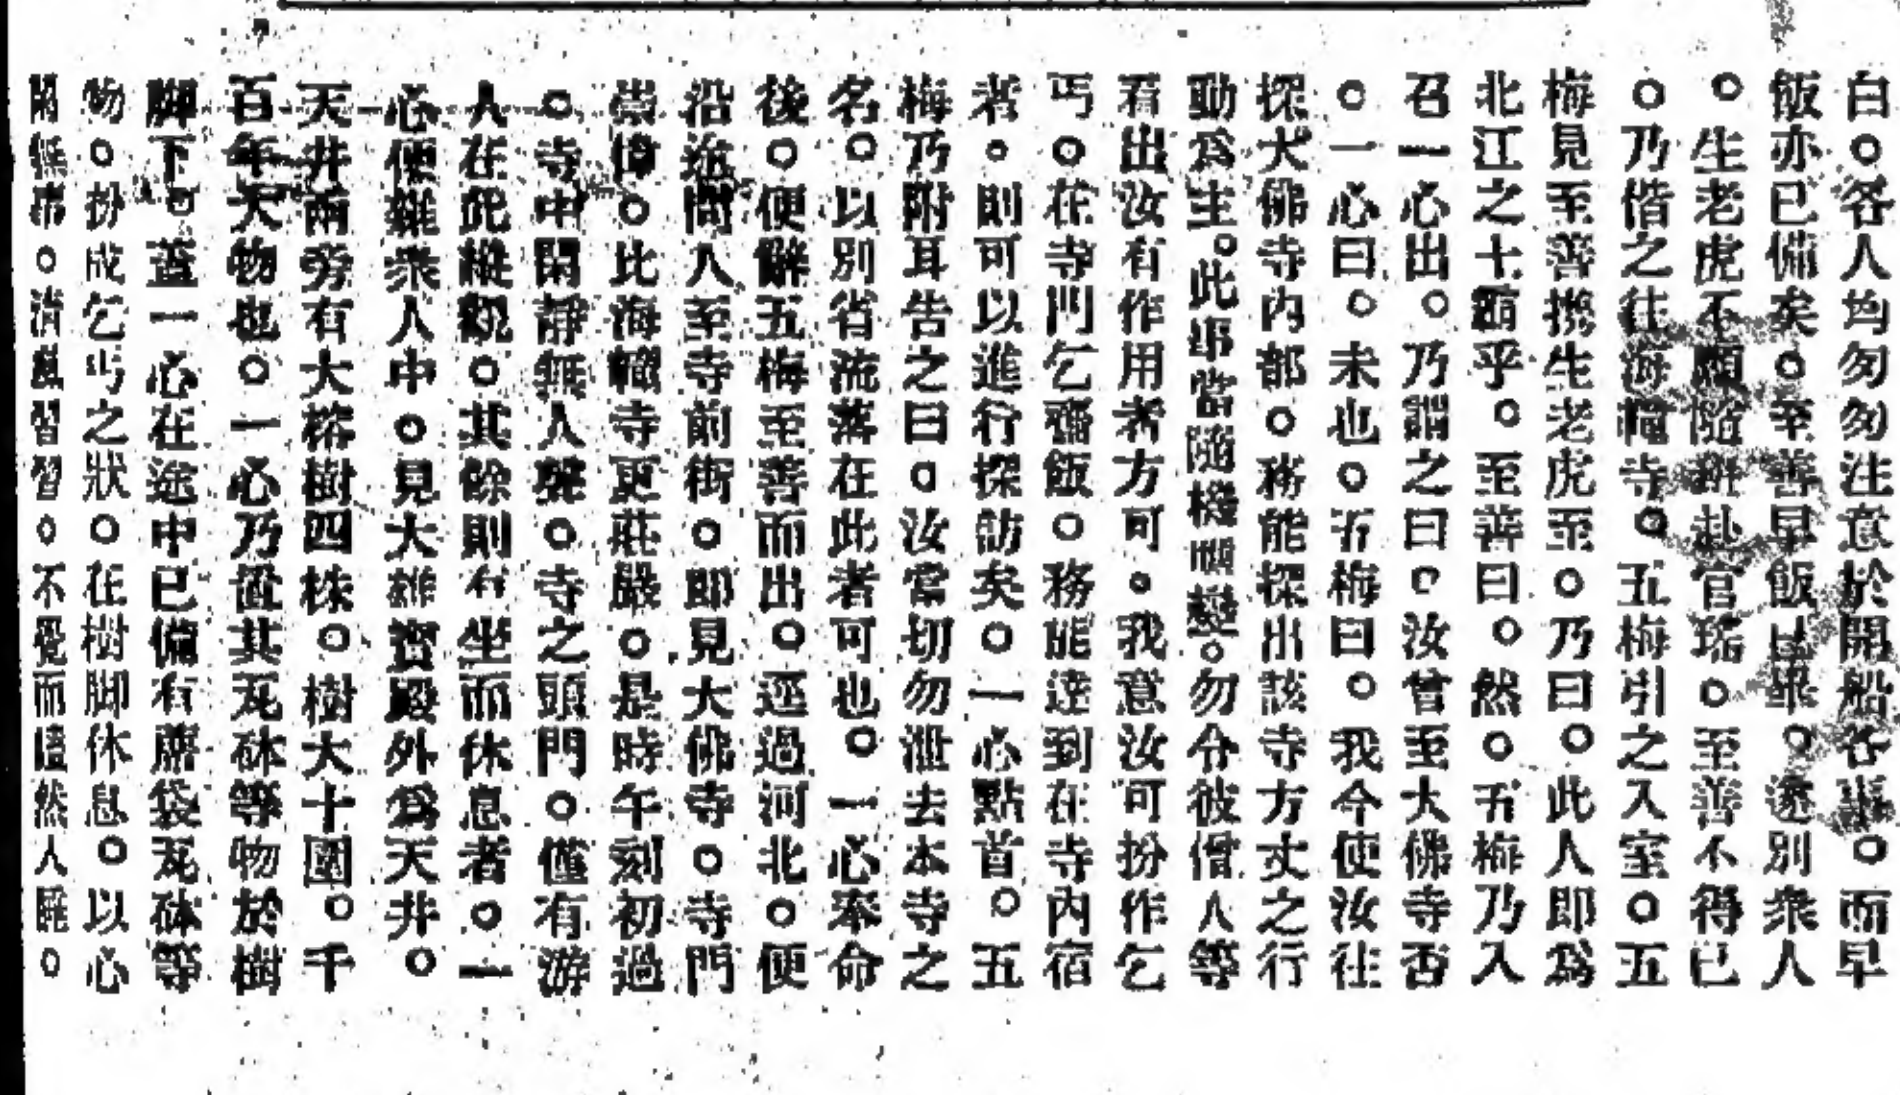 白。各人均匆匆注意於開船各事。而早
飯亦已備矣。至善早飯已畢。遂別衆人
。生老虎不願隨赴官窰。至善不得已
。乃偕之往海幢寺。五梅引之入室。五
梅見至善携生老虎至。乃曰。此人即爲
北江之土霸乎。至善曰。然。五梅乃入
召一心出。乃謂之曰。汝曾至大佛寺否
。一心曰。未也。五梅曰。我今使汝往
探大佛寺內部。務能探出該寺方丈之行
動爲主。此事當隨機順變。勿令彼僧人等
看出汝有作用者方可。我意汝可扮作乞
丐。在寺門乞齋飯。務能達到在寺內宿
者。則可以進行探訪矣。一心點首。五
梅乃附耳告之曰。汝當切勿泄去本寺之
名。以別省流落在此者可也。一心奉命
後。便辭五梅至善而出。逕過河北。便
沿途問人至寺前街。即見大佛寺。寺門
崇偉。比海幢寺更莊嚴。是時午刻初過
。寺中閑靜無人聲。寺之頭門。僅有游
人在此縱觀。其餘則有坐而休息者。一
心便雜衆人中。見大雄寶殿外爲天井。
天井兩旁有大榕樹四株。樹大十圍。千
百年大物也。一心乃置其瓦砵等物於樹
脚下。蓋一心在途中已備有蓆袋瓦砵等
物。扮成乞丐之狀。在樹脚休息。以心
閑無事。清風習習。不覺而瞌然人睡。